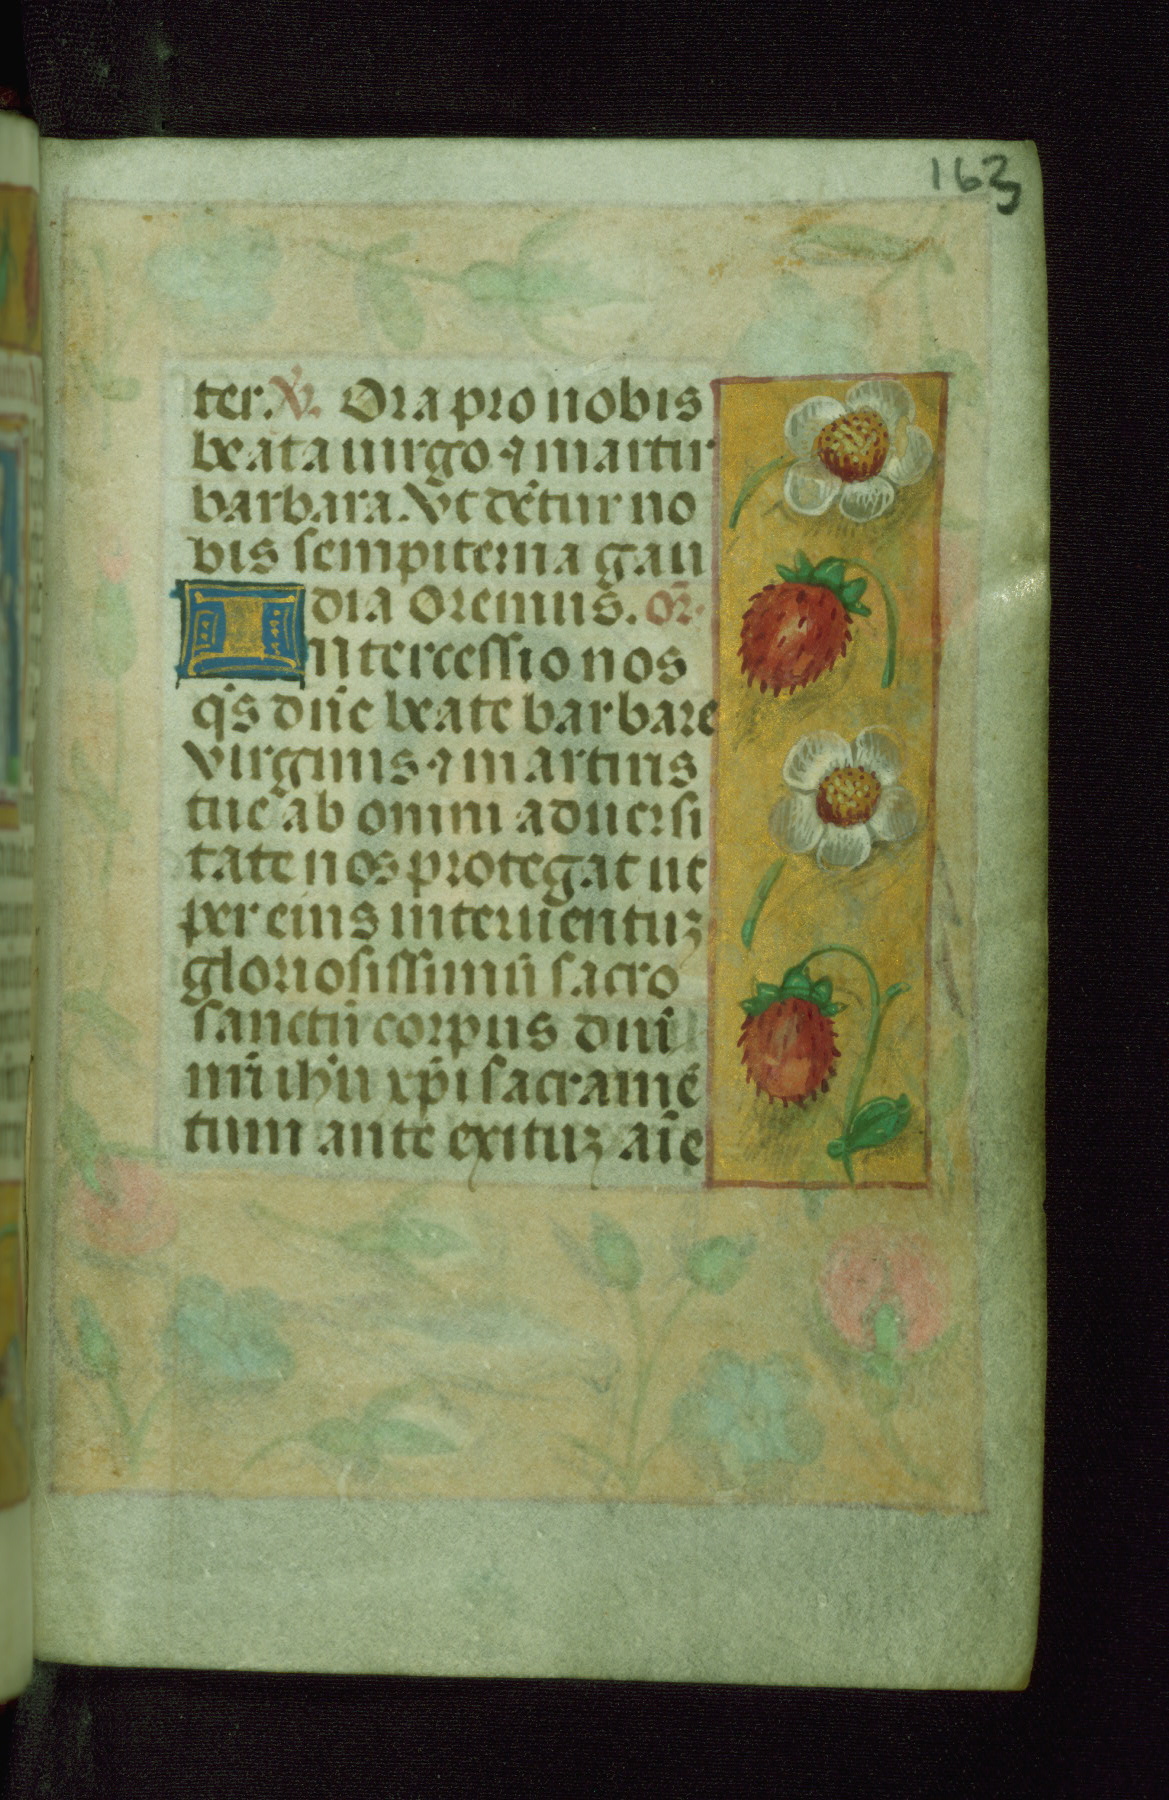 163
ter. V. Ora pro nobis
beata uirgo ⁊ martir
barbara. Vt det̄ur no
bis sempiterna gau
dia Oremus. Or̄.
Intercessio nos
q̄s dn̄e beate barbare
virginis ⁊ martiris
tue ab omni aduersi
tate nos protegat ut
per eius interuentuꝫ
gloriosissimū sacro
sanctū corpus dn̄i
nr̄i ih̄u xp̄i sacramē
tum ante exituꝫ aīe